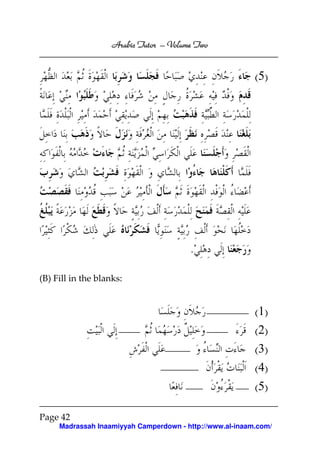 Arabic Tutor – Volume Two
(5) جَاءَ رَجُلَانِ عِنْدِيْ صَبَاحًا فَجَلَسَا وَشَرِبَا الْقَهْوَةَ ثُمَّ بَعْدَ الظُّهْرِ
قَدِمَ وَفْدٌ فِيْهِ عَشَرَةُ رِجَالٍ مِنْ شُرَفَاءِ دِهْلِيْ وَطَلَبُوْا مِنِّيْ إِعَانَةً
لِلْمَدْرَسَةِ الطِّبِّيَّةِ فَذَهَبْتُ بِهِمْ إِلَي صَدِيْقِيْ أَحْمَدَ أَمِيْرِ الْبَلْدَةِ فَلَمَّا
بَلَغْنَا عِنْدَ قَصْرِهِ نَظَرَ إِلَيْنَا مِنَ الْغُرْفَةِ وَنَزَلَ حَالاً وَذَهَبَ بِنَا دَاخِلَ
الْقَصْرِ وَأَجْلَسَنَا عَلَي الْكَرَاسِيِّ الْمُزَيَّنَةِ ثُمَّ جَاءَتْ خُدَّامُهُ بِالْفَوَاكِهِ
فَلَمَّا أَكَلْنَاهَا جَاءُوْا بِالشَّايِ وَ الْقَهْوَةِ فَشَرِبْتُ الشَّايَ وَشَرِبَ
أَعْضَاءُ الْوَفْدِ الْقَهْوَةَ ثُمَّ سَأَلَ الْأَمِيْرُ عَنْ سَبَبِ قُدُوْمِنَا فَقَصَصْتُ
عَلَيْهِ الْقِصَّةَ فَمَنَحَ لِلْمَدْرَسَةِ أَلْفَ رُبِيَّةٍ حَالاً وَقَطَعَ لَهَا مَزْرَعَةً يَبْلُغُ
دَخْلُهَا نَحْوَ أَلْفِ رُبِيَّةٍ سَنَوِيًّا فَشَكَرْنَاهُ عَلَي ذٰلِكَ شُكْرًا كَثِيْرًا
وَرَجَعْنَا إِلَي دِهْلِيْ.
(B) Fill in the blanks:
(1) ـــــــــ رَجُلَانِ وَجَلَسَا
(2) قَرَءَ ـــــــ وَخَلِيْلٌ دَرْسَهُمَا ثُمَّ ـــــــ إِلَي الْبَيْتِ
(3) جَاءَتِ النِّسَاءُ وَ ـــــــــ عَلَي الْفَرْشِ
(4) اَلْبَنَاتُ يَقْرَأْنَ ـــــــــ
(5) ـــــــ يَقْرَءُوْنَ ـــــــ نَافِعًا
Page 42
Madrassah Inaamiyyah Camperdown - http://www.al-inaam.com/